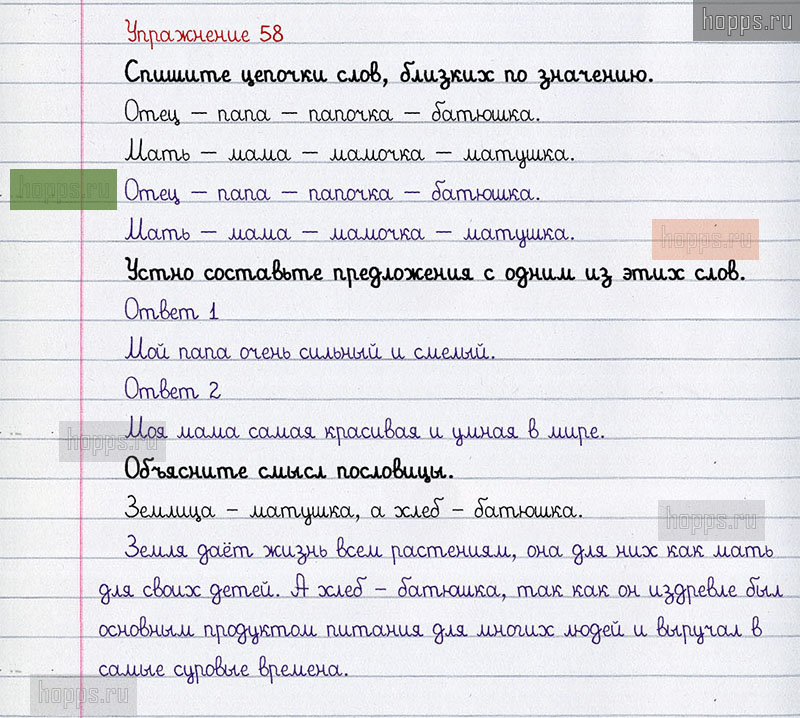 hopps.ru
Упражнение 58
Спишите цепочки слов, близких по значению.
Отец – папа – папочка – батюшка.
Мать – мама – мамочка – матушка.
hopps.ru
Отец – папа – папочка – батюшка.
Мать – мама – мамочка – матушка.
hopps.ru
Устно составьте предложения с одним из этих слов.
Ответ 1
Мой папа очень сильный и смелый.
Ответ 2
Моя мама самая красивая и умная в мире.
hopps.ru
Объясните смысл пословицы.
Землица – матушка, а хлеб – батюшка.
hopps.ru
Земля даёт жизнь всем растениям, она для них как мать
для своих детей. А хлеб – батюшка, так как он издревле был
основным продуктом питания для многих людей и выручал в
самые суровые времена.
hopps.ru